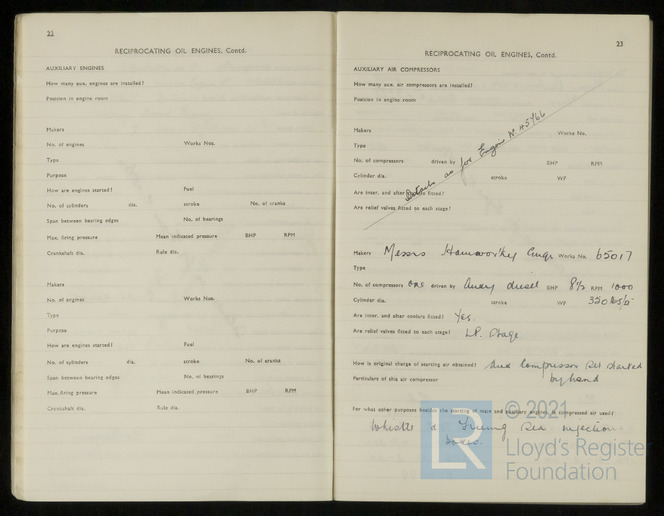 22
RECIPROCATING OIL ENGINES, Contd.
AUXILIARY ENGINES
How many aux. engines are installed?
Position in engine room
Makers
No. of engines Works Nos.
Type
Purpose
How are engines started? Fuel
No. of cylinders dia. stroke No. of cranks
Span between bearing edges No. of bearings
Max. firing pressure Mean indicated pressure BHP RPM
Crankshaft dia. Rule dia.
Makers
No. of engines Works Nos.
Type
Purpose
How are engines started? Fuel
No. of cylinders dia. stroke No. of cranks
Span between bearing edges No. of bearings
Max. firing pressure Mean indicated pressure BHP RPM
Crankshaft dia. Rule dia.
23
RECIPROCATING OIL ENGINES, Contd.
AUXILIARY AIR COMPRESSORS
How many aux. air compressors are installed?
Position in engine room
Makers Works No.
Type
No. of compressors driven by BHP RPM
Cylinder dia. stroke WP
Are inter. and after coolers fitted?
Are relief valves fitted to each stage?
Details as for Engine No H5466
Makers Messrs Hamworthy Engs Works No. 65017
Type
No. of compressors one driven by diesel BHP 8½ RPM 1000
Cylinder dia. stroke WP 350
Are inter. and after coolers fitted? Yes.
Are relief valves fitted to each stage? L.P. Stage
How is original charge of starting air obtained? Aux Compressor Set started
Particulars of this air compressor by hand
For what other purposes besides the starting of main and auxiliary engines is compressed air used?
Whistle & Sea injection
© 2021
LR
Lloyd's Register
Foundation